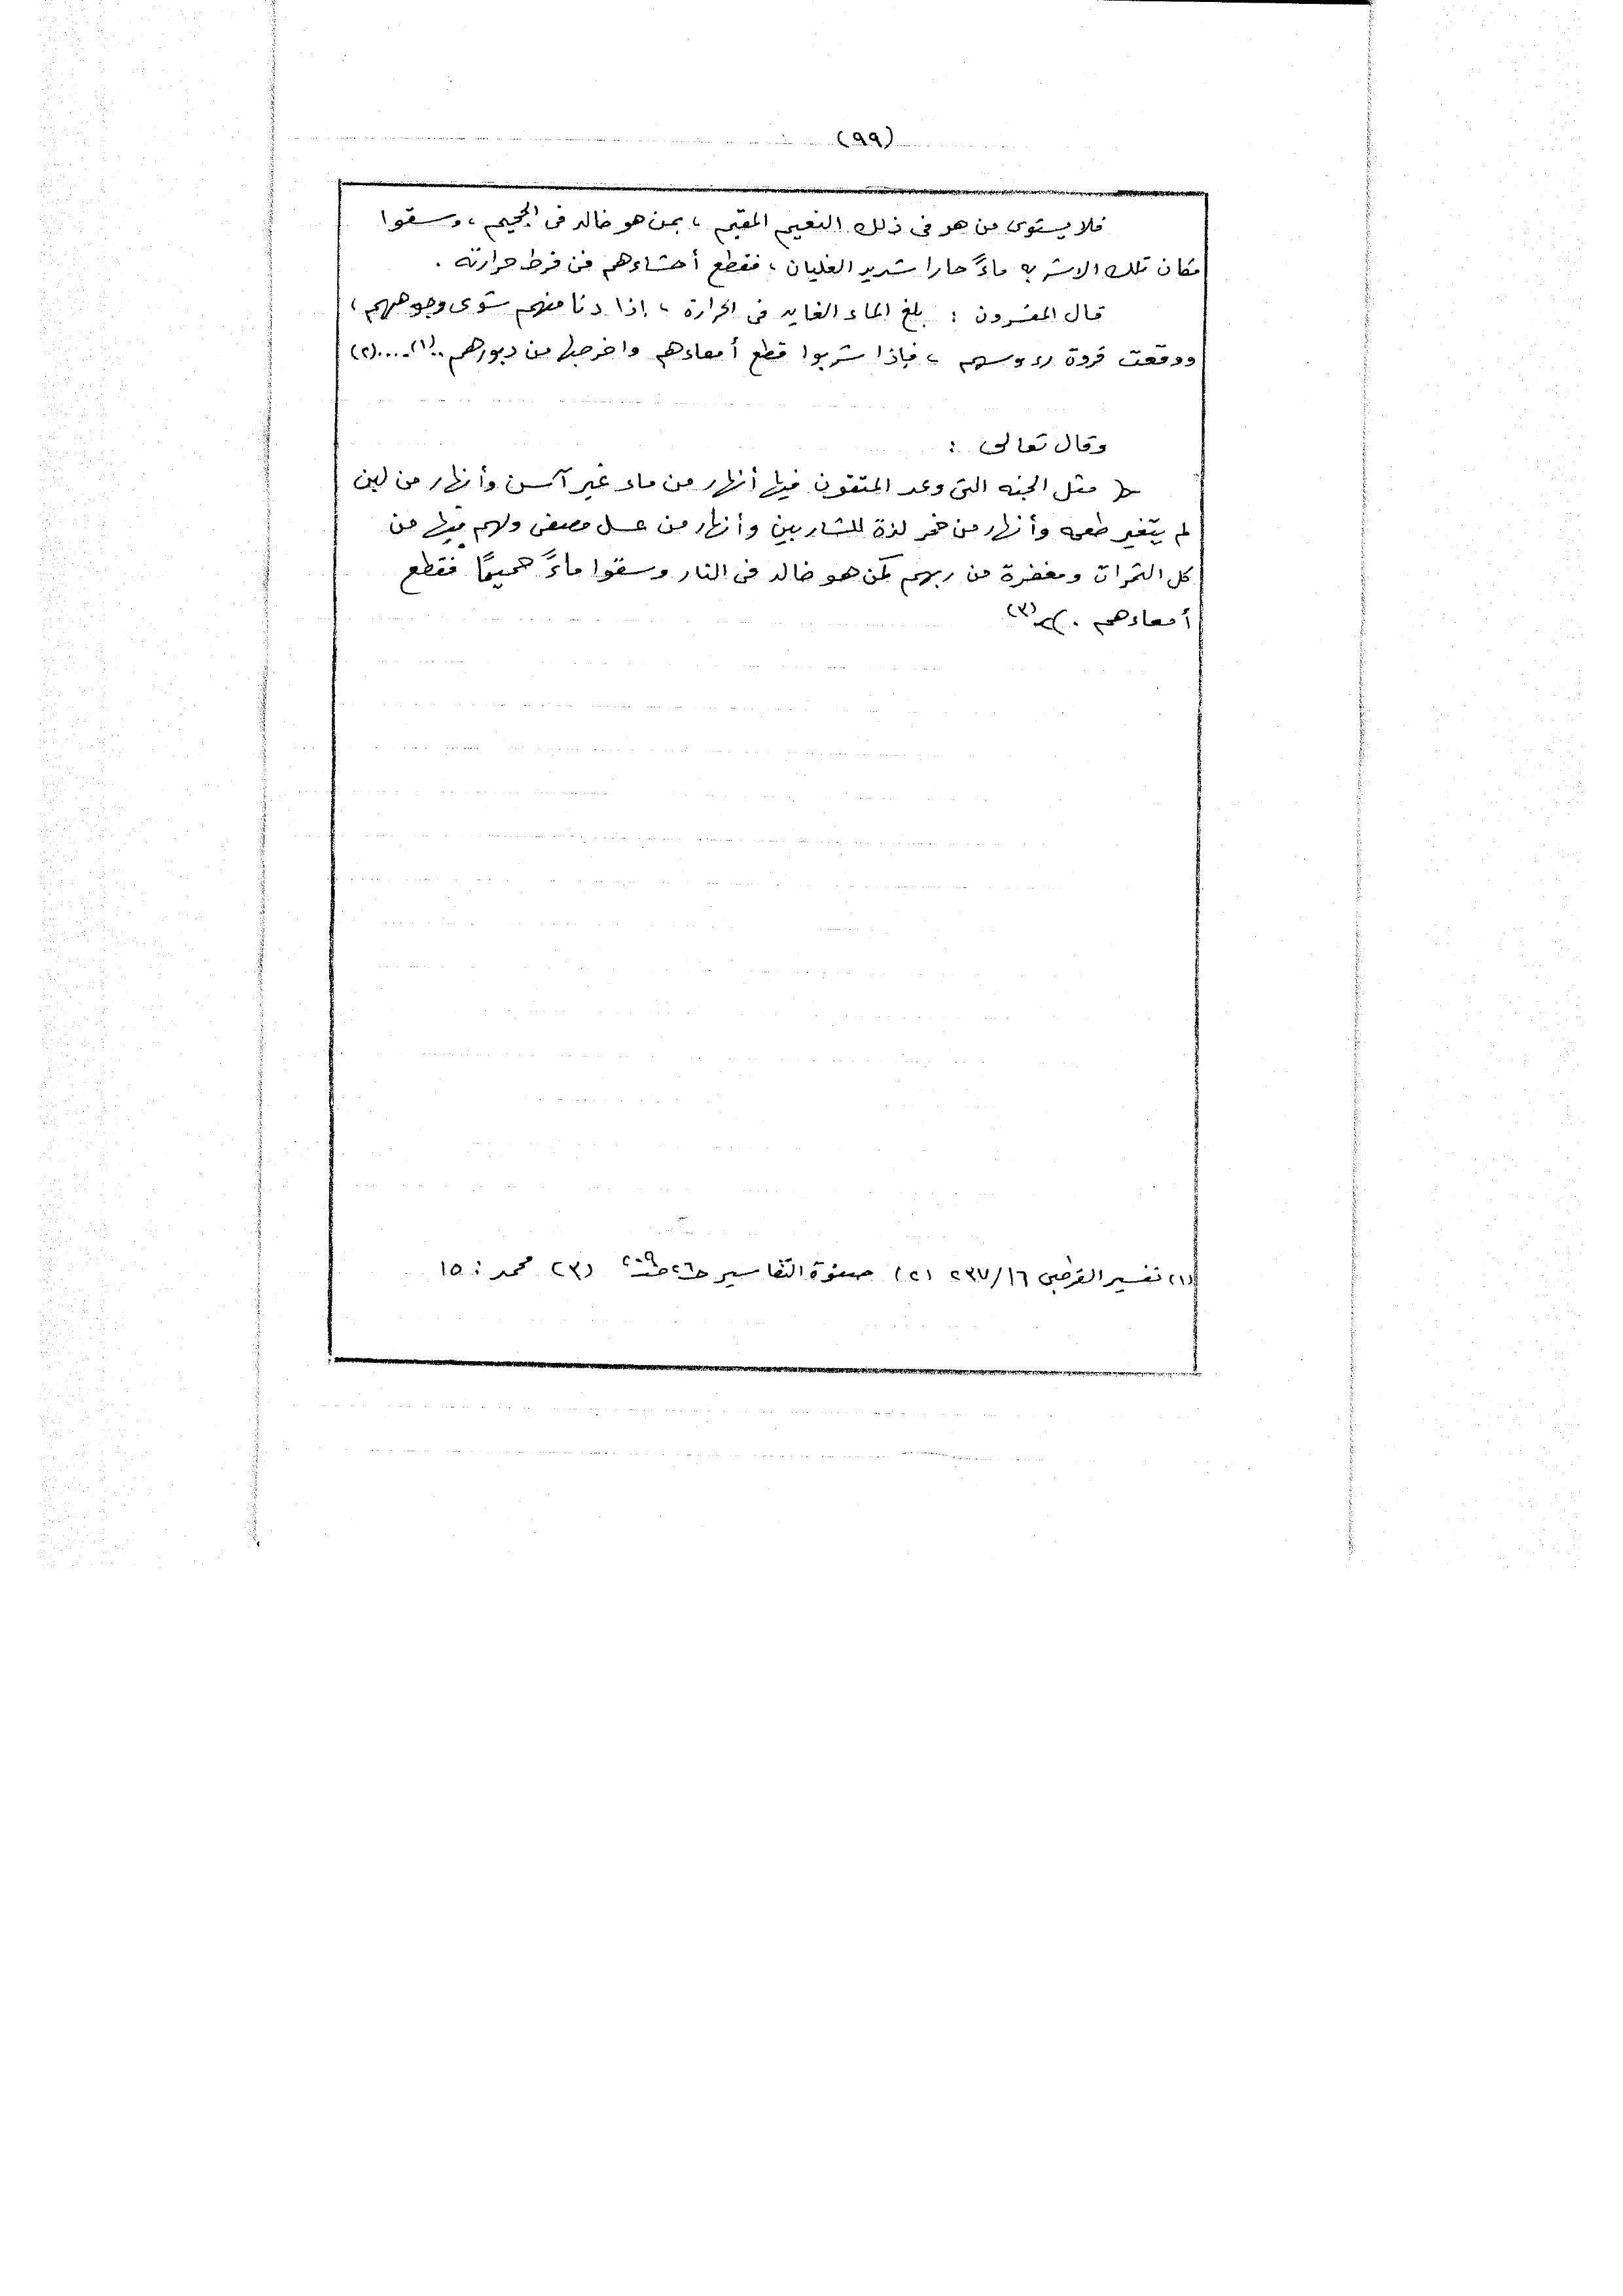 (٩٩)
فلا يستوى من هو فى ذلك النعيم المقيم ، بمن هو خالد فى الجحيم ، وسقوا
مكان تلك الاشربه ماءً حارا شديد الغليان ، فقطع أحشاءهم من فرط حرارته .
قال المفسرون : بلغ الماء الغايه فى الحرارة ، إذا دنا منهم شوى وجوههم ،
ووقعت فروة رءوسهم ، فإذا شربوا قطع أمعاءهم واخرجها من دبورهم ..(١)....(٢)
وقال تعالى :
﴿ مثل الجنه التى وعد المتقون فيها أنهار من ماء غير آسن وأنهار من لبن
لم يتغير طعمه وأنهار من خمر لذة للشاربين وأنهار من عسل مصفى ولهم فيها من
كل الثمرات ومغفرة من ربهم كمن هو خالد فى النار وسقوا ماءً حميمًا فقطع
أمعاءهم . ﴾(٣)
(١) تفسير القرطبى ١٦/٢٣٧ (٢) صفوة التفاسير (٣) محمد : ١٥